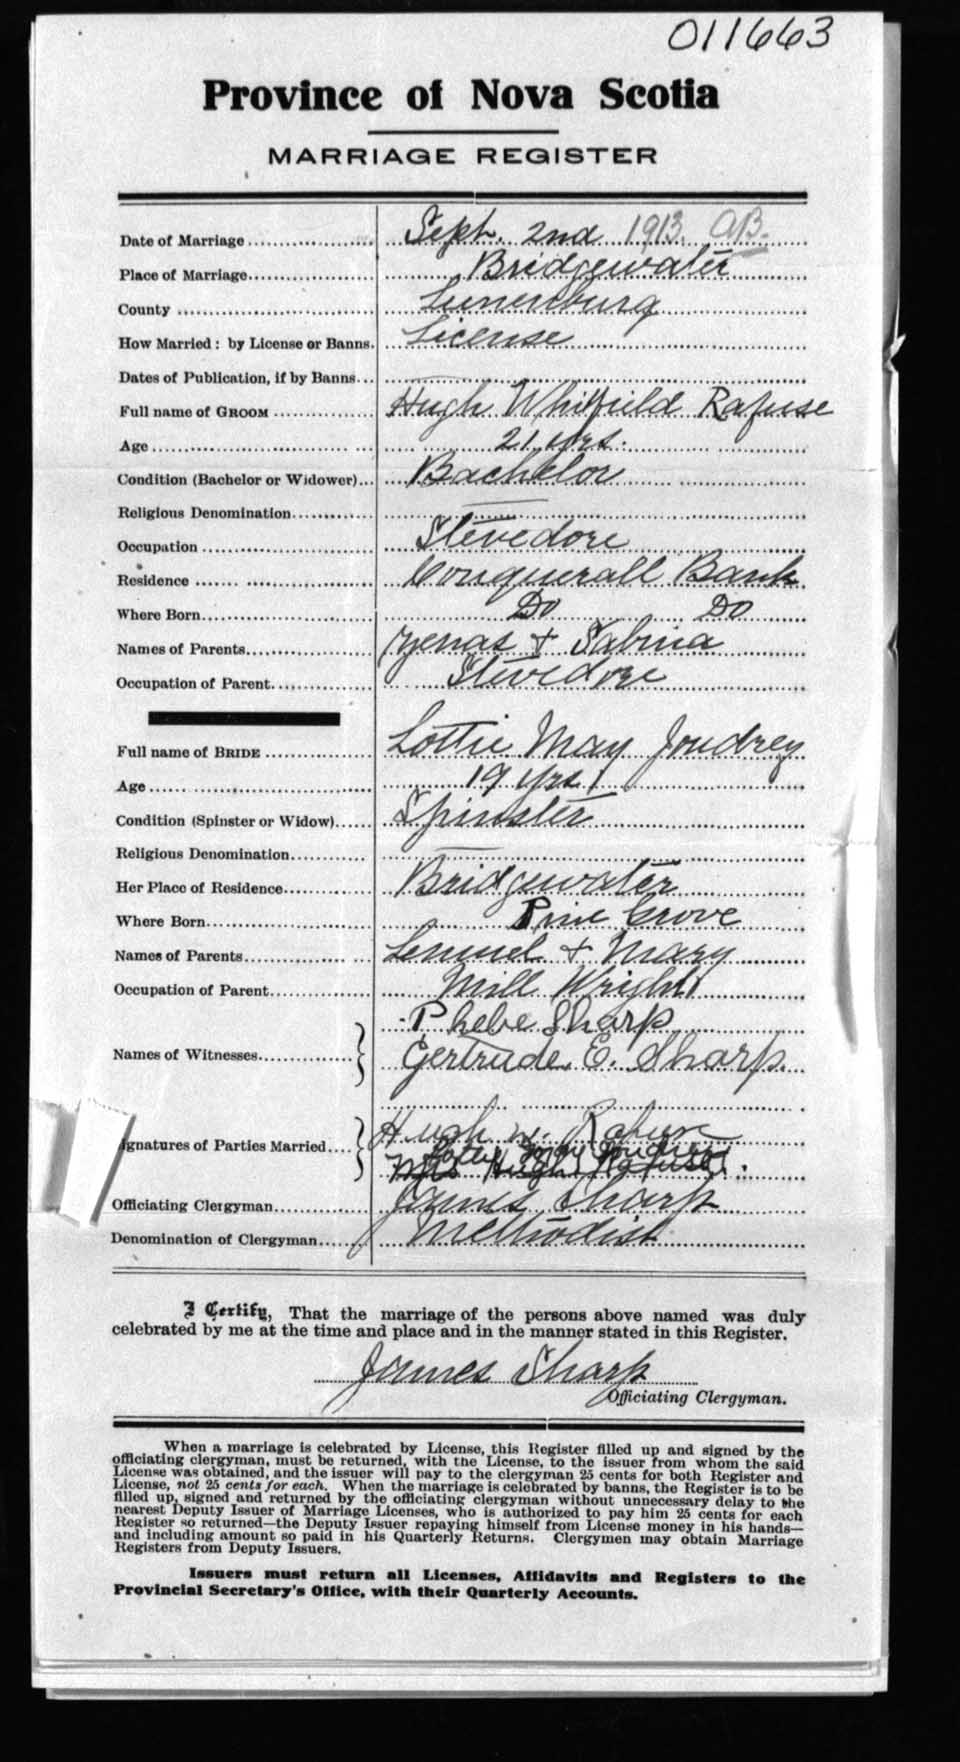 011663
Province of Nova Scotia
MARRIAGE REGISTER
Date of Marriage Sept. 2nd 1913. AB.
Place of Marriage Bridgewater
County Lunenburg
How Married: by License or Banns. License
Dates of Publication, if by Banns
Full name of GROOM Hugh Whitfield Rafuse
Age 21 yrs.
Condition (Bachelor or Widower) Bachelor
Religious Denomination
Occupation Stevedore
Residence Conquerall Bank
Where Born Do Do
Names of Parents Zenas + Sabina
Occupation of Parent Stevedore
Full name of BRIDE Lottie May Joudrey
Age 19 yrs
Condition (Spinster or Widow) Spinster
Religious Denomination
Her Place of Residence Bridgewater
Where Born Pine Grove
Names of Parents Lemuel + Mary
Occupation of Parent Mill Wright
Phebe Sharp
Names of Witnesses Gertrude E. Sharp.
Hugh W. Rafuse
Signatures of Parties Married Lottie May Joudrey
Mrs Hugh Rafuse.
Officiating Clergyman James Sharp
Denomination of Clergyman Methodist
I Certify, That the marriage of the persons above named was duly
celebrated by me at the time and place and in the manner stated in this Register.
James Sharp
Officiating Clergyman.
When a marriage is celebrated by License, this Register filled up and signed by the
officiating clergyman, must be returned, with the License, to the issuer from whom the said
License was obtained, and the issuer will pay to the clergyman 25 cents for both Register and
License, not 25 cents for each. When the marriage is celebrated by banns, the Register is to be
filled up, signed and returned by the officiating clergyman without unnecessary delay to the
nearest Deputy Issuer of Marriage Licenses, who is authorized to pay him 25 cents for each
Register so returned—the Deputy Issuer repaying himself from License money in his hands—
and including amount so paid in his Quarterly Returns. Clergymen may obtain Marriage
Registers from Deputy Issuers.
Issuers must return all Licenses, Affidavits and Registers to the
Provincial Secretary's Office, with their Quarterly Accounts.